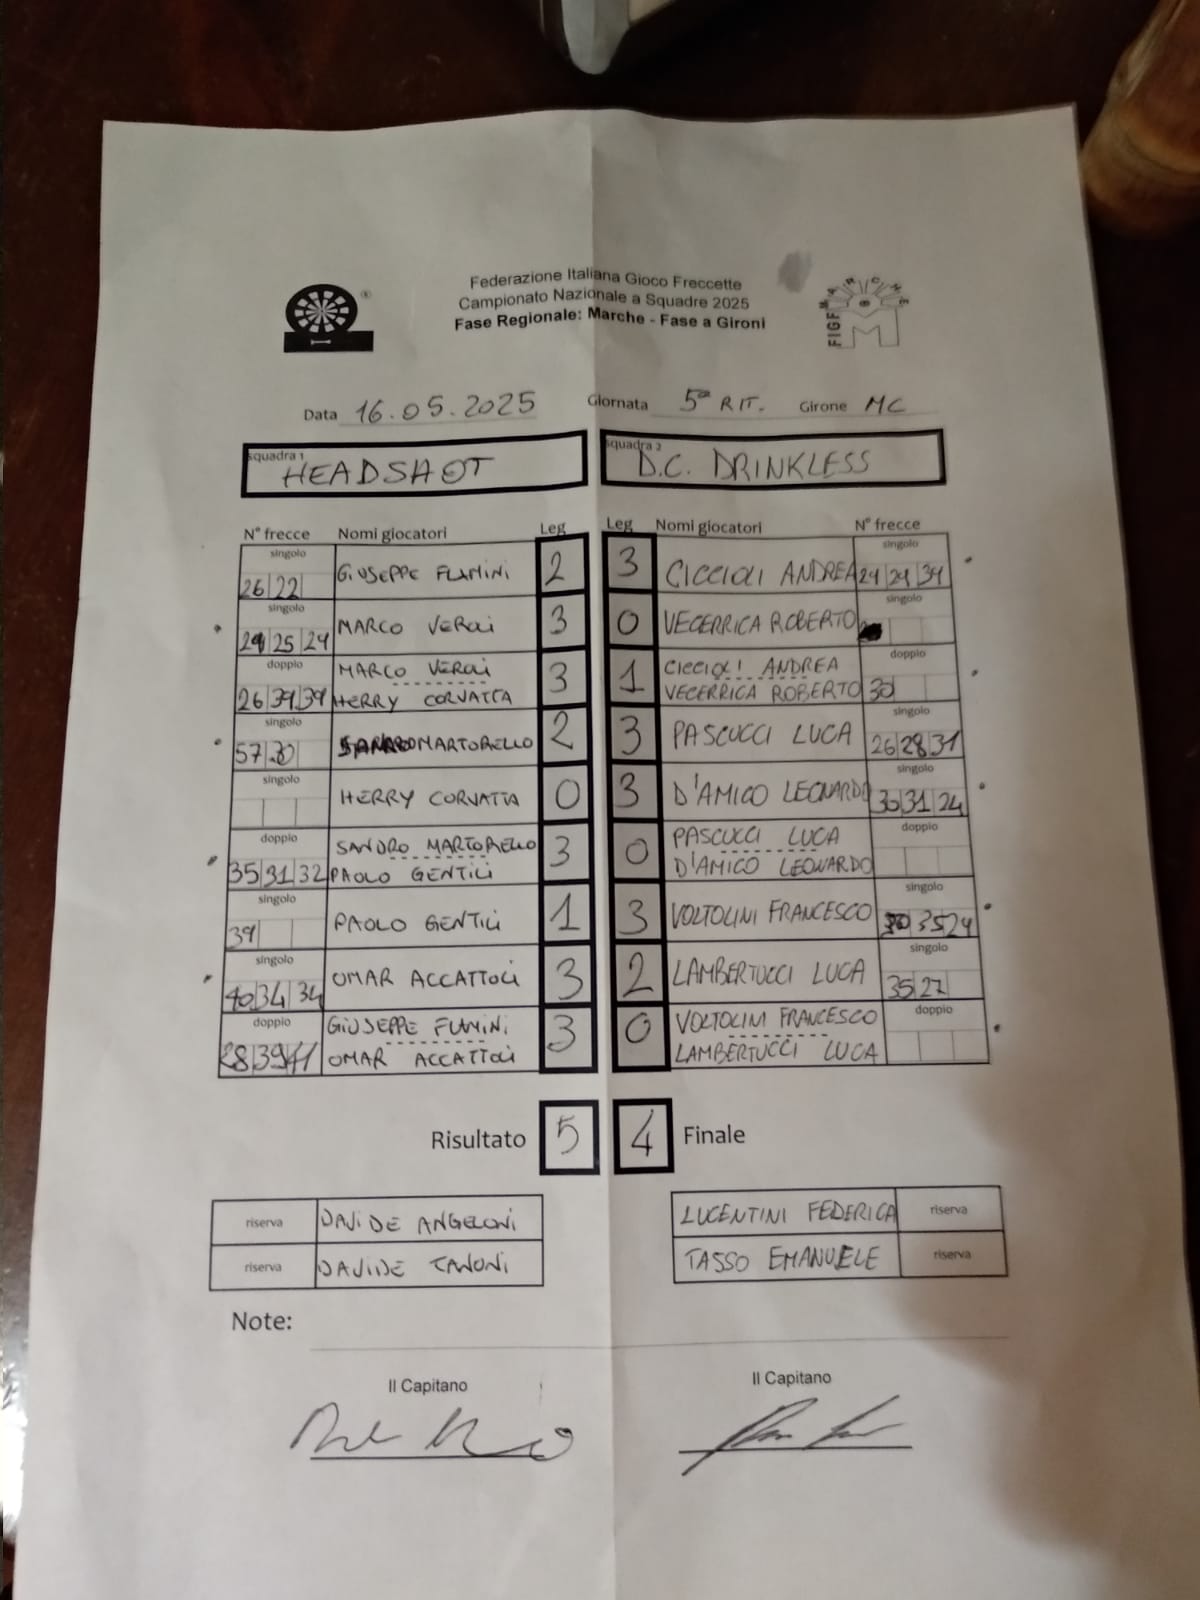 Federazione Italiana Gioco Freccette
Campionato Nazionale a Squadre 2025
Fase Regionale: Marche - Fase a Gironi
FIGF MARCHE
M
Data 16.05.2025 Giornata 5ª RIT. Girone MC
squadra 1 HEADSHOT squadra 2 D.C. DRINKLESS
N° frecce Nomi giocatori Leg Leg Nomi giocatori N° frecce
singolo 26 22 GIUSEPPE FLAMINI 2 3 CICCIOLI ANDREA singolo 24 34
singolo 25 24 MARCO VERDI 3 0 VECERRICA ROBERTO singolo
doppio MARCO VERDI 3 1 CICCIOLI ANDREA doppio
26 39 39 HERRY CORVATTA VECERRICA ROBERTO 30
singolo 57 MARTORELLO 2 3 PASCUCCI LUCA singolo 26 28 31
singolo HERRY CORVATTA 0 3 D'AMICO LEONARDO singolo 30 31 24
doppio SANDRO MARTORELLO 3 0 PASCUCCI LUCA doppio
35 31 32 PAOLO GENTILI D'AMICO LEONARDO
singolo 39 PAOLO GENTILI 1 3 VOLTOLINI FRANCESCO singolo 35 24
singolo 40 34 34 OMAR ACCATTOLI 3 2 LAMBERTUCCI LUCA singolo 35 27
doppio GIUSEPPE FLAMINI 3 0 VOLTOLINI FRANCESCO doppio
39 41 OMAR ACCATTOLI LAMBERTUCCI LUCA
Risultato 5 4 Finale
riserva DAVIDE ANGELONI LUCENTINI FEDERICA riserva
riserva DAVIDE TANONI TASSO EMANUELE riserva
Note:
Il Capitano Il Capitano